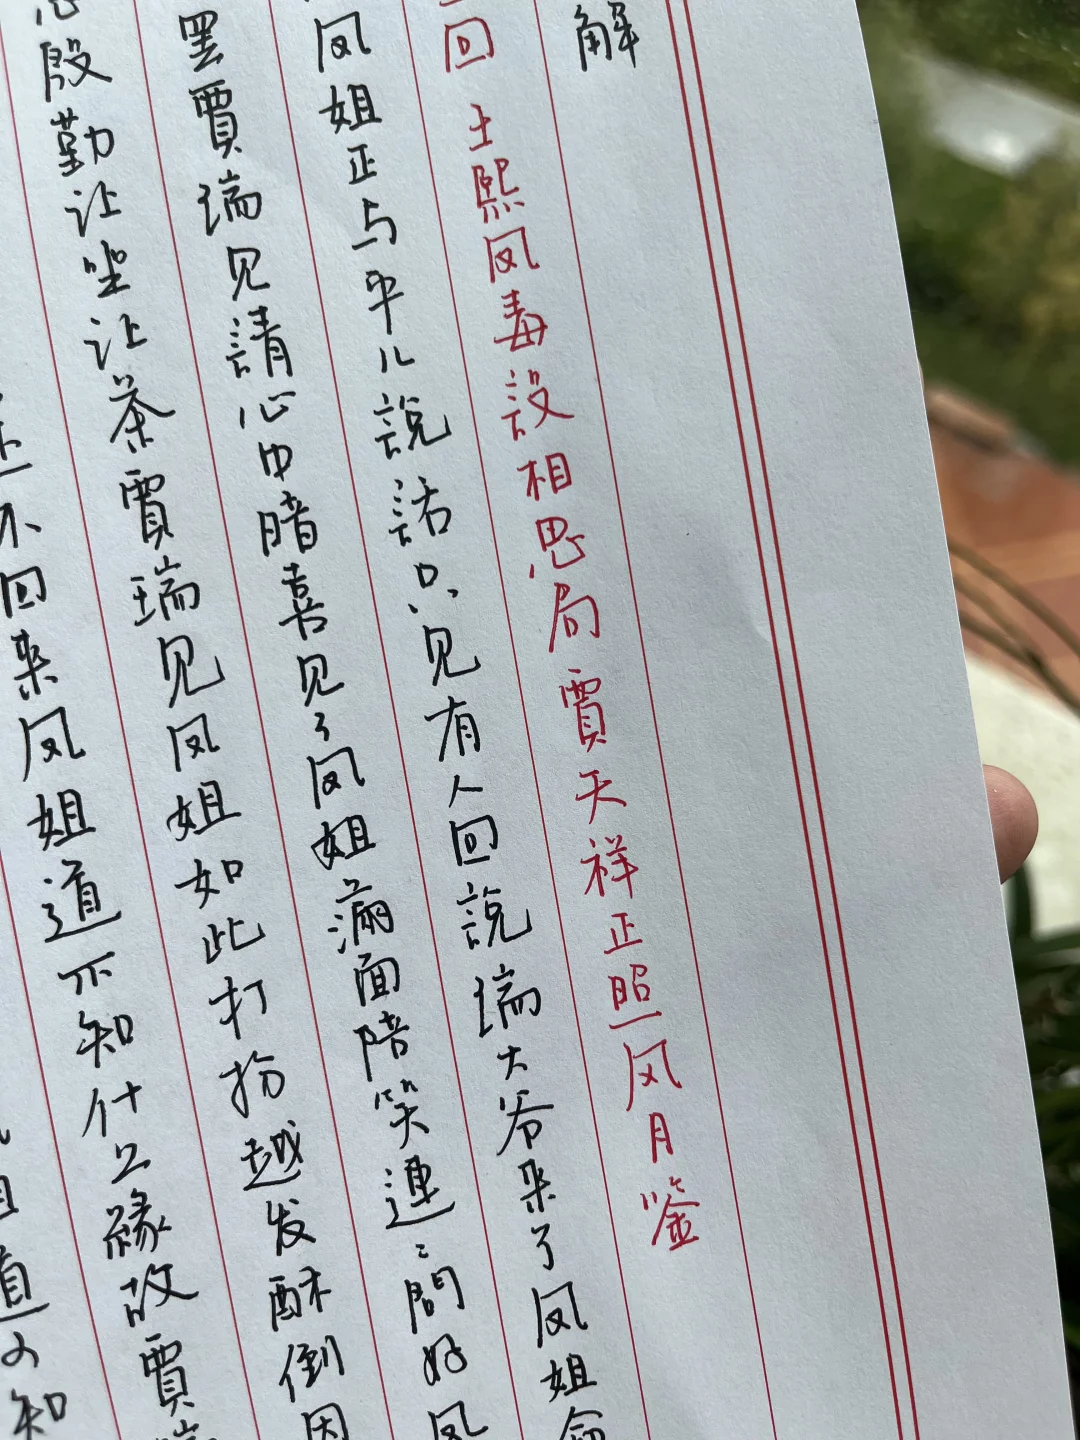 解
回王熙凤毒設相思局賈天祥正照风月鉴
凤姐正与平儿說話只見有人回說瑞大爷来了凤姐命
罢賈瑞见請心中暗喜见了凤姐满面陪笑連〻問好凤
殷勤让坐让茶賈瑞见凤姐如此打扮越发酥倒因
不回来凤姐道不知什么緣故賈瑞
道不知